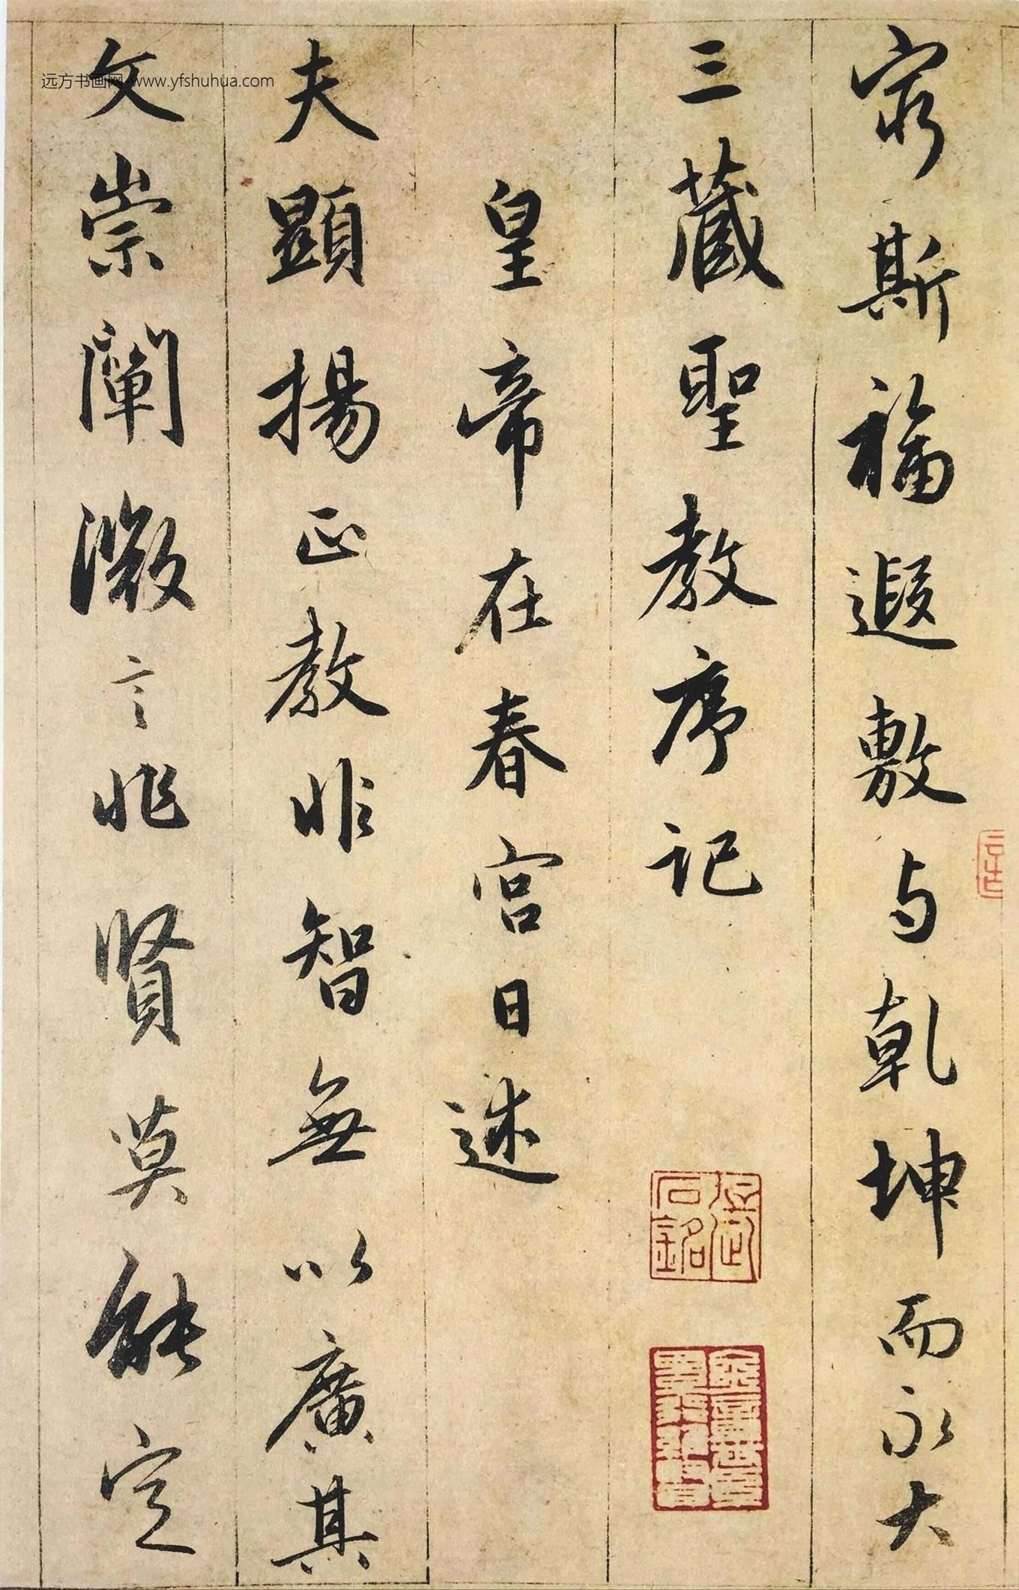 窮斯福遐敷与乾坤而永大
三藏聖教序记
皇帝在春宫日述
夫顯揚正教非智無以廣其
文崇闡微言非賢莫能定
远方书画网 www.yfshuhua.com